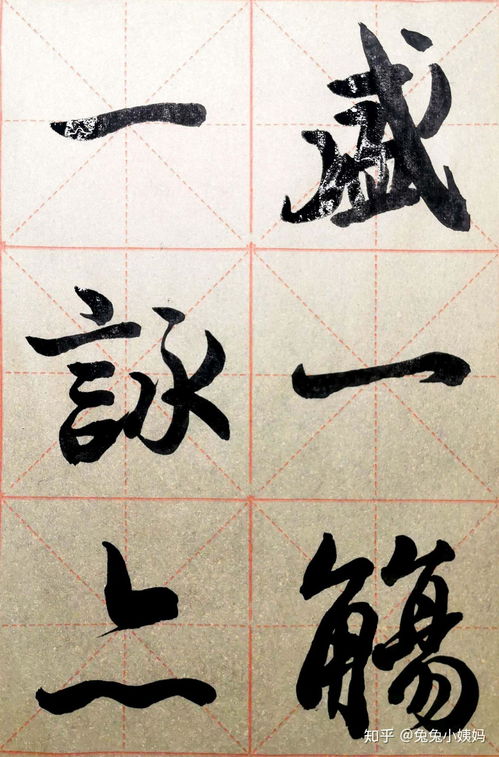 盛一觴
一詠亦
知乎 @兔兔小姨妈